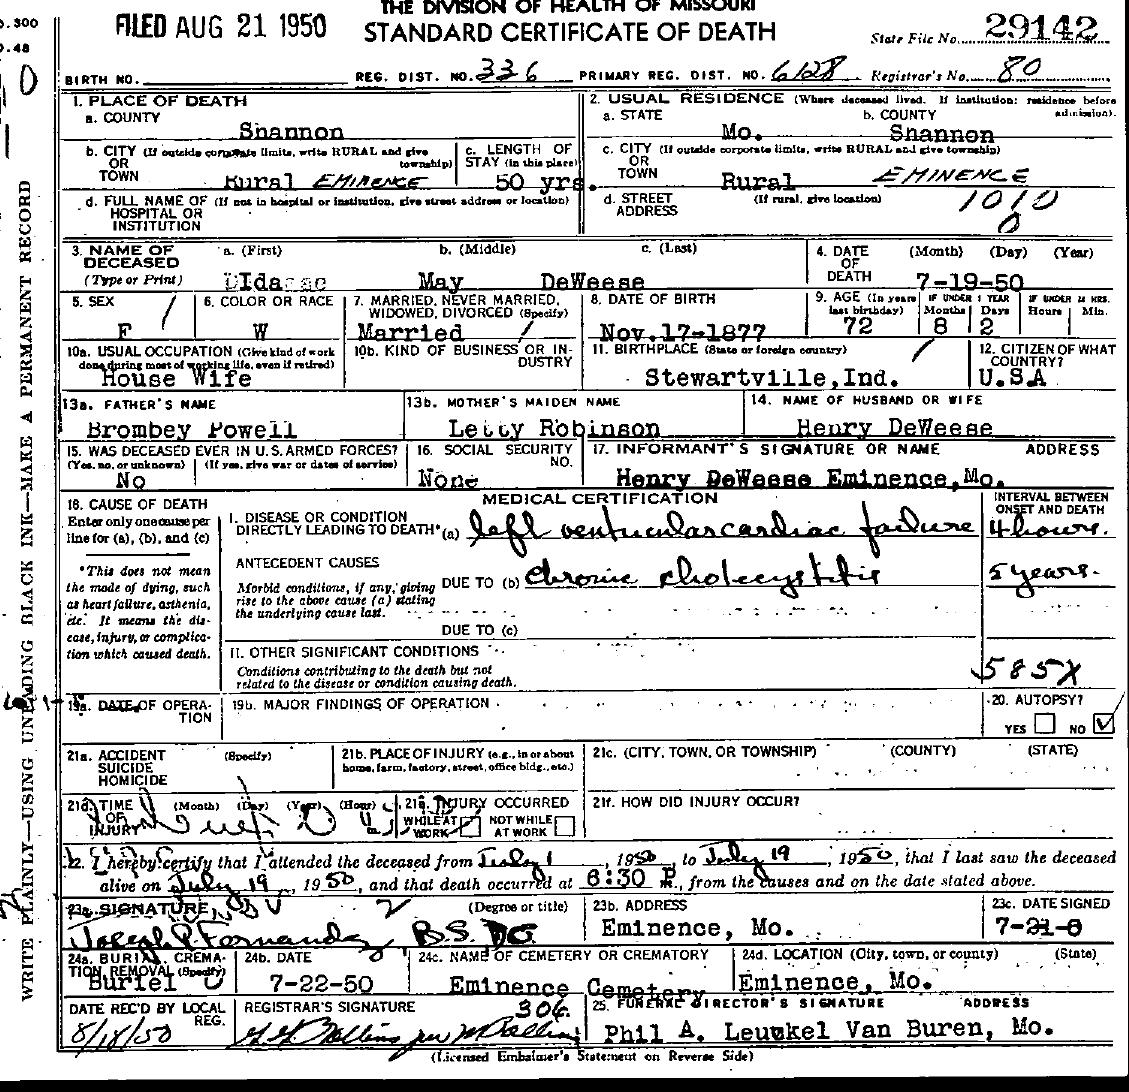 THE DIVISION OF HEALTH OF MISSOURI
FILED AUG 21 1950 STANDARD CERTIFICATE OF DEATH State File No. 29142
BIRTH NO. REG. DIST. NO. 336 PRIMARY REG. DIST. NO. 6128 Registrar's No. 80
1. PLACE OF DEATH 2. USUAL RESIDENCE (Where deceased lived. If institution: residence before admission).
a. COUNTY Shannon a. STATE Mo. b. COUNTY Shannon
b. CITY (If outside corporate limits, write RURAL and give township) OR TOWN Rural EMINENCE c. LENGTH OF STAY (in this place) 50 yrs. c. CITY (If outside corporate limits, write RURAL and give township) OR TOWN Rural EMINENCE
d. FULL NAME OF (If not in hospital or institution, give street address or location) HOSPITAL OR INSTITUTION d. STREET ADDRESS (If rural, give location) 1010 0
3. NAME OF DECEASED (Type or Print) a. (First) Ida b. (Middle) May c. (Last) DeWeese 4. DATE OF DEATH (Month) (Day) (Year) 7-19-50
5. SEX F 6. COLOR OR RACE W 7. MARRIED, NEVER MARRIED, WIDOWED, DIVORCED (Specify) Married 8. DATE OF BIRTH Nov.17-1877 9. AGE (In years last birthday) 72 IF UNDER 1 YEAR Months 8 Days 2 IF UNDER 24 HRS. Hours Min.
10a. USUAL OCCUPATION (Give kind of work done during most of working life, even if retired) House Wife 10b. KIND OF BUSINESS OR INDUSTRY 11. BIRTHPLACE (State or foreign country) Stewartville,Ind. 12. CITIZEN OF WHAT COUNTRY? U.S.A
13a. FATHER'S NAME Brombey Powell 13b. MOTHER'S MAIDEN NAME Letty Robinson 14. NAME OF HUSBAND OR WIFE Henry DeWeese
15. WAS DECEASED EVER IN U.S. ARMED FORCES? (Yes, no, or unknown) (If yes, give war or dates of service) No 16. SOCIAL SECURITY NO. None 17. INFORMANT'S SIGNATURE OR NAME ADDRESS Henry DeWeese Eminence,Mo.
18. CAUSE OF DEATH Enter only one cause per line for (a), (b), and (c) MEDICAL CERTIFICATION INTERVAL BETWEEN ONSET AND DEATH
I. DISEASE OR CONDITION DIRECTLY LEADING TO DEATH* (a) left ventricular cardiac failure 4 hours.
*This does not mean the mode of dying, such as heart failure, asthenia, etc. It means the disease, injury, or complication which caused death.
ANTECEDENT CAUSES Morbid conditions, if any, giving rise to the above cause (a) stating the underlying cause last. DUE TO (b) chronic cholecystitis 5 years.
DUE TO (c)
II. OTHER SIGNIFICANT CONDITIONS Conditions contributing to the death but not related to the disease or condition causing death. 585X
19a. DATE OF OPERATION 19b. MAJOR FINDINGS OF OPERATION 20. AUTOPSY? YES NO
21a. ACCIDENT SUICIDE HOMICIDE (Specify) 21b. PLACE OF INJURY (e.g., in or about home, farm, factory, street, office bldg., etc.) 21c. (CITY, TOWN, OR TOWNSHIP) (COUNTY) (STATE)
21d. TIME OF INJURY (Month) (Day) (Year) (Hour) 21e. INJURY OCCURRED WHILE AT WORK NOT WHILE AT WORK 21f. HOW DID INJURY OCCUR?
22. I hereby certify that I attended the deceased from July 1, 1950, to July 19, 1950, that I last saw the deceased
alive on July 19, 1950, and that death occurred at 6:30 P., from the causes and on the date stated above.
23a. SIGNATURE (Degree or title) 23b. ADDRESS Eminence, Mo. 23c. DATE SIGNED
Joseph P. Fernandez B.S. DO
24a. BURIAL, CREMATION, REMOVAL (Specify) Buriel 24b. DATE 7-22-50 24c. NAME OF CEMETERY OR CREMATORY Eminence Cemetery 24d. LOCATION (City, town, or county) (State) Eminence, Mo.
DATE REC'D BY LOCAL REG. 8/18/50 REGISTRAR'S SIGNATURE 306 25. FUNERAL DIRECTOR'S SIGNATURE ADDRESS Phil A. Leuckel Van Buren, Mo.
(Licensed Embalmer's Statement on Reverse Side)
WRITE PLAINLY—USING UNFADING BLACK INK—MAKE A PERMANENT RECORD